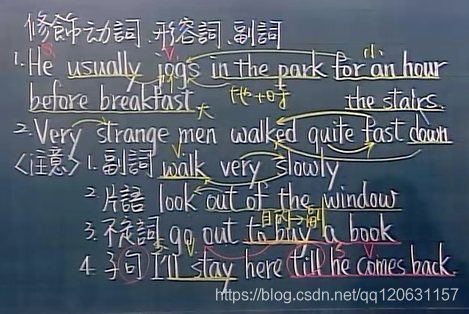 修飾动词、形容詞、副詞
1. He usually jogs in the park for an hour
before breakfast. the stairs.
2. Very strange men walked quite fast down
<注意> 1. 副詞 walk very slowly
2. 片語 look out of the window
3. 不定詞 go out to buy a book
4. 子句 I'll stay here till he comes back.
https://blog.csdn.net/qq120631157